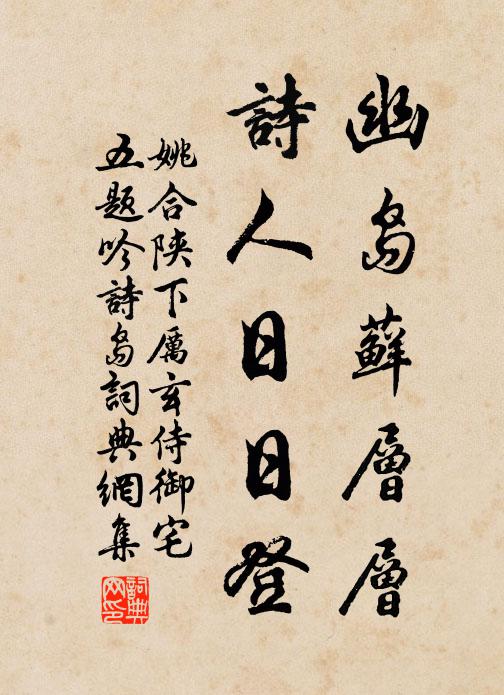 幽島蘚層層
詩人日日登
姚合陝下厲玄侍御宅
五题吟詩島詞典網集
詞典
网印